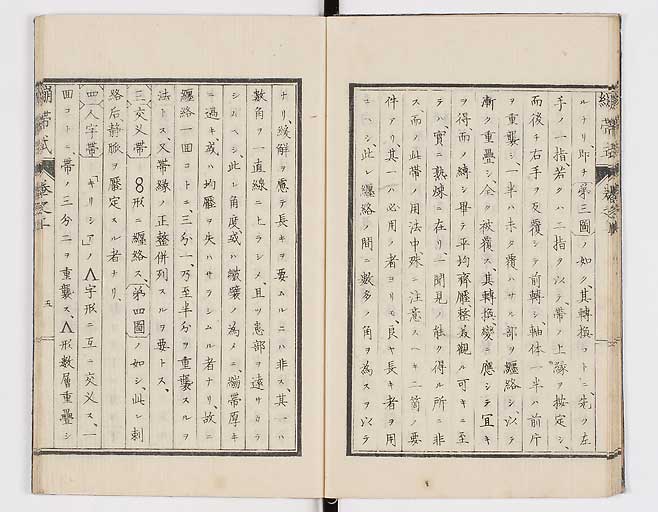 ルナリ、即チ第三圖ノ如ク、其轉撰コトニ、先ツ左
手ノ一指、若クハ二指ヲ以テ、帶ノ上縁ヲ按定シ、
而後チ右手ヲ反覆シテ前轉シ軸体一半ハ前斤
ヲ重襲シ、一半ハ未タ覆ハサル部ヲ纏絡シ、以テ
漸ク重疊シ、全ク被覆ス、其轉撰ノ變ニ應シテ宜キ
ヲ得、而ノ縛シ畢テ平均齊壓、整美觀ル可キニ至
テハ實ニ熟煉ニ在リ、一聞見ノ能ク得ル所ニ非
ス、而ノ此帶ノ用法中、殊ニ注意スヘキ二箇ノ要
件アリ、其一ハ必用ノ者ヨリモ、良ヤ長キ者ヲ用
ユヘシ、此レ纏絡ノ間ニ數多ノ角ヲ為スヲ以テ
ナリ、緩解ヲ慮テ長キヲ要ムルニハ非ス、其一ハ
數角ヲ一直線ニヒラシメ、且ツ患部ヲ遠サカラ
シムヘシ、此レ角度、或ハ纎壞ノ為メニ、繃帶厚キ
ニ過キ、或ハ均壓ヲ失ハサラシムル者ナリ、故ニ
纏絡一回コトニ、三分一、乃至半分ヲ重襲スルヲ
法トス、又帶縁ノ正整併列スルヲ要トス、
三交叉帶 8形ニ纏絡ス、第四圖ノ如シ、此レ刺
路后、静脉ヲ壓定スル者ナリ、
四人字帶 「ギリシア」ノΛ字形ニ互ニ交叉ス、一
回コトニ、帶ノ三分二ヲ重襲ス、Λ形數層重疊シ
繃帶式 卷之上 五